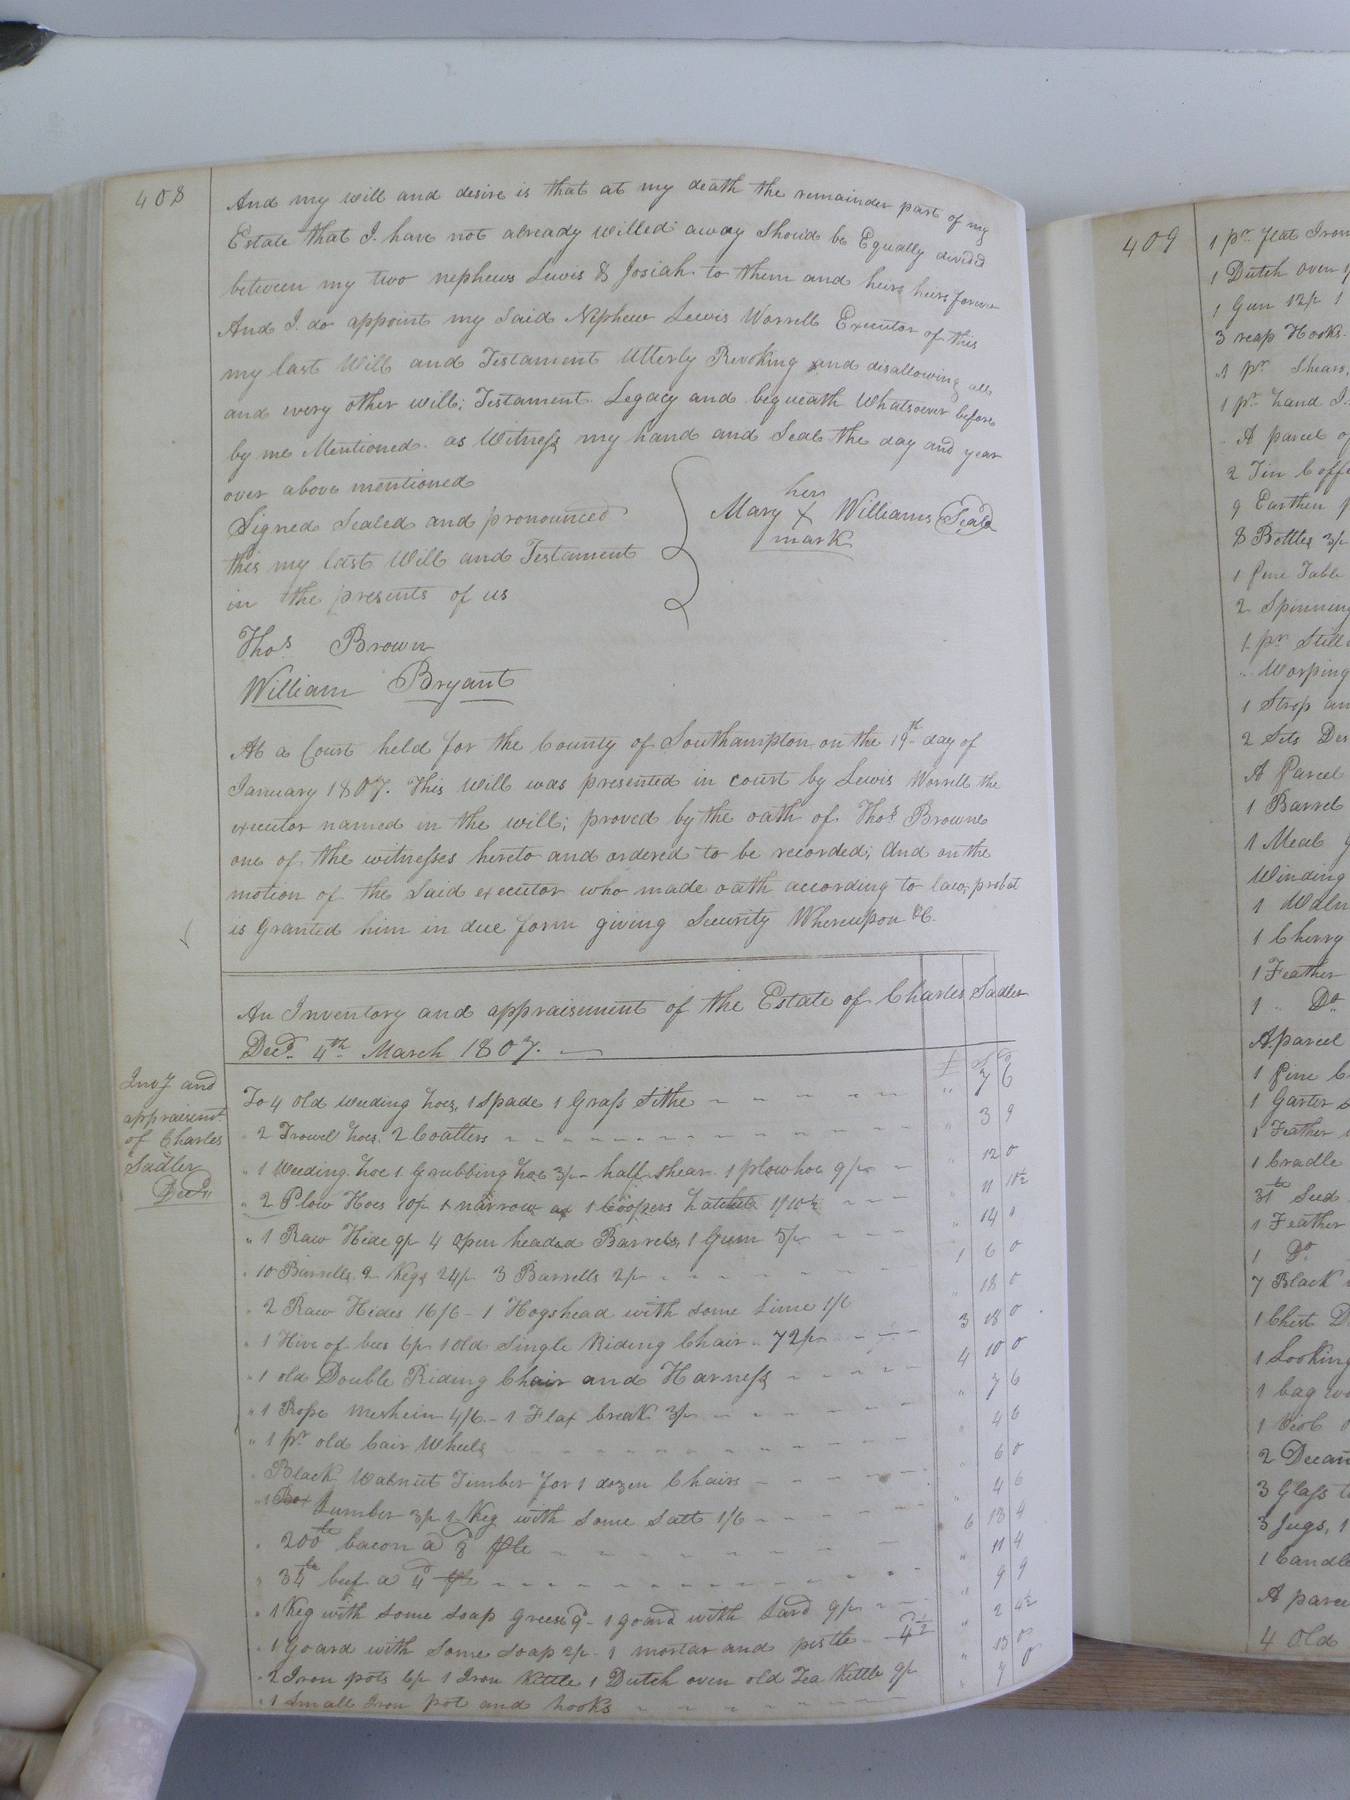 408
And my will and desire is that at my death the remainder part of my
Estate that I have not already willed away Should be Equally divided
between my two nephews Lewis & Josiah to them and heirs heirs forever
And I do appoint my Said Nephew Lewis Worrell Executor of this
my last Will and Testament Utterly Revoking and disallowing all
and every other will; Testament Legacy and bequeath Whatsoever before
by me Mentioned as Witness my hand and Seal the day and year
over above mentioned
Signed Sealed and pronounced
this my last Will and Testament
in the presents of us
her
Mary X Williams Seal
mark
Thos Brown
William Bryant
At a Court held for the County of Southampton on the 19th day of
January 1807. This Will was presented in court by Lewis Worrell the
executor named in the will; proved by the oath of Thos Browne
one of the witnesses hereto and ordered to be recorded; And on the
motion of the Said executor who made oath according to law, probat
is Granted him in due form giving Security Whereupon &C.
An Inventory and appraisement of the Estate of Charles Sadler
Decd. 4th March 1807.
Invy and
appraisemt
of Charles
Sadler
Decd
£ S D
To 4 old weeding hoes, 1 Spade 1 Grass Sithe " 7 6
" 2 Trowel hoes. 2 Coatters " 3 9
" 1 Weeding hoe 1 Grubbing hoe 3/- half shear 1 plow hoe 9/- " 12 0
" 2 Plow Hoes 10/- 1 narrow ax 1 Coopers hatchet 1/10½ " 11 10½
" 1 Raw Hide 9/- 4 open headed Barrels, 1 Gum 5/- " 14 "
" 10 Barrells 2 Kegs 24/- 3 Barrells 2/- 1 6 0
" 2 Raw Hides 16/6 - 1 Hogshead with some Lime 1/6 " 18 0
" 1 Hive of bees 6/- 1 old Single Riding Chair 72/- 3 18 0
" 1 old Double Riding Chair and Harness 4 10 0
" 1 Rope 4/6 - 1 Flax break 3/- " 7 6
" 1 pr old Cair Wheels " 4 6
" Black Walnut Timber for 1 dozen Chairs " 6 0
" 1 Box Lumber 3/- 1 Keg with some Salt 1/6 " 4 6
" 200 lb bacon a 8d 6 13 4
" 34 lb beef a 4d " 11 4
" 1 Keg with some soap Greese 9d - 1 goard with Lard 9/- " 9 9
" 1 Goard with Some Soap 2/- 1 mortar and pistle 4½ " 2 4½
" 2 Iron pots 6/- 1 Iron Kittle 1 Dutch oven old Tea Kettle 9/- " 15 0
" 1 Small Iron pot and hooks
409
1 pr Flat Iron
1 Dutch oven
1 Gun 12/- 1
3 reap Hooks
1 pr Shears,
1 pr hand
A parcel of
2 Tin Coffe
9 Earthen
8 Bottles 3/-
1 pine Table
2 Spinning
1 pr Still
Worping
1 Strop an
2 Sets
A Parcel
1 Barrel
1 Meal
Winding
1 Waln
1 Cherry
1 Feather
1 " Do
A parcel
1 pine
1 Garter
1 Feather
1 Cradle
31 lb Seed
1 Feather
1 Do
7 Black
1 Chest
1 Looking
1 bag
1
2 Decan
3 Glass
3 Jugs, 1
1 Candle
A parce
4 Old